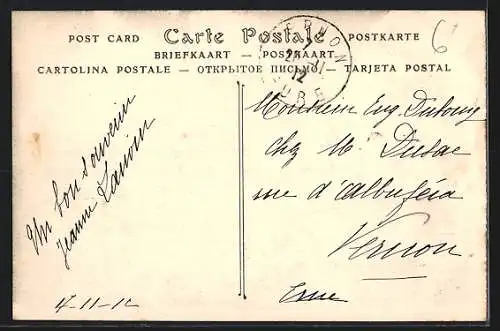 POST CARD Carte Postale POSTKARTE
BRIEFKAART — POSTKAART
CARTOLINA POSTALE — ОТКРЫТОЕ ПИСЬМО — TARJETA POSTAL
6
12
Un bon souvenir
Jeanne
4-11-12
Monsieur Eug.
chez M. Dusac
rue d'Albuféra
Vernon
Eure